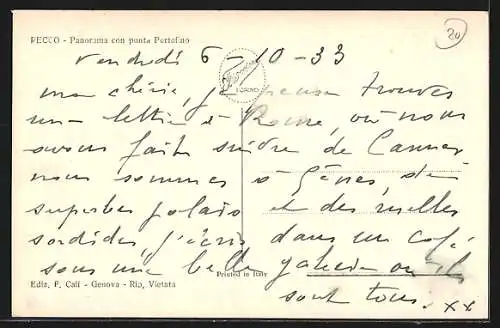 RECCO - Panorama con punta Portofino
20
vendredi 6-10-33
ma chérie, je pensais trouver
une lettre à Rome, où nous
avons fait suivre de Cannes
nous sommes à Gênes, 
superbes palais et des ruelles
sordides, j'écris dans un café
sous une belle galerie où ils
sont tous. xx
Printed in Italy
Ediz. F. Calì - Genova - Rip. Vietata